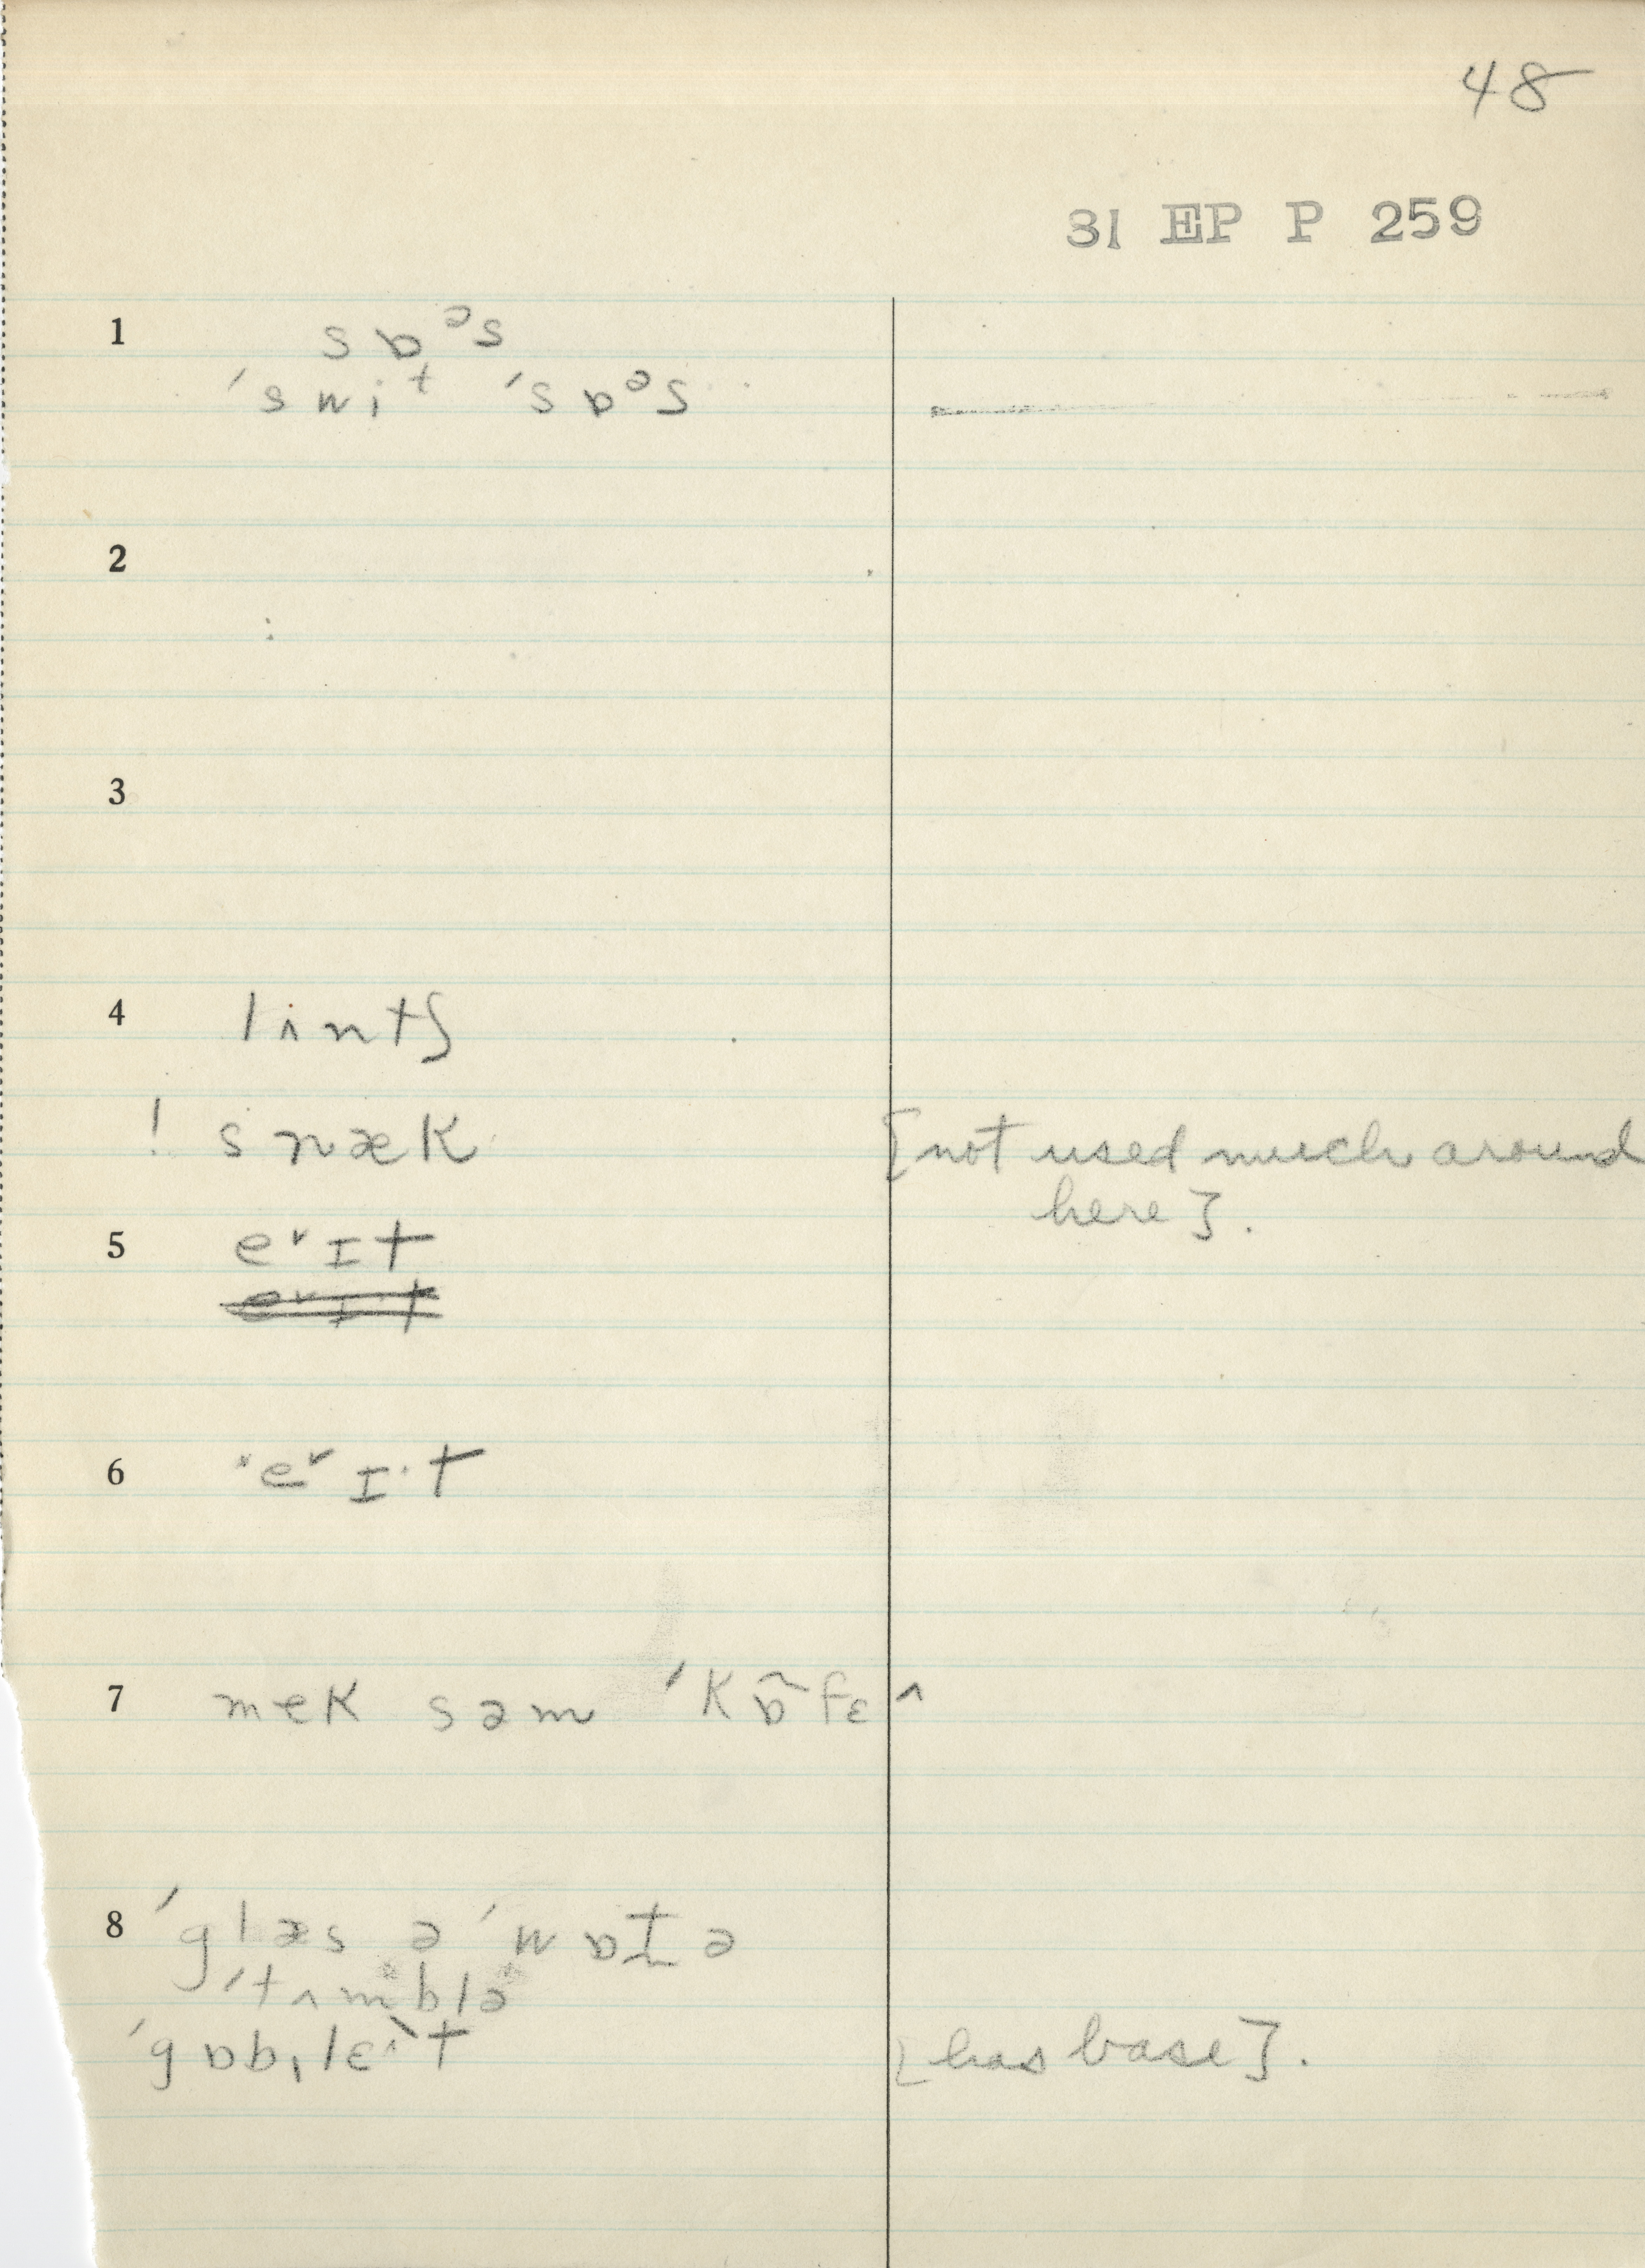 48
31 EP P 259
1 sɒᵊs
ˈswiᵗ ˈsɒᵊs
2
3
4 lʌntʃ
! snæk [not used much around
here].
5 e˅ɪt
e˅ɪ·t
6 ˈe˅ɪ·t
7 mek səm ˈkɒ̃fɛ^
8 ˈglæs ə ˈwɒt̬ə
ˈtʌmblə
ˈgɒbˌlɛ^t [has base].